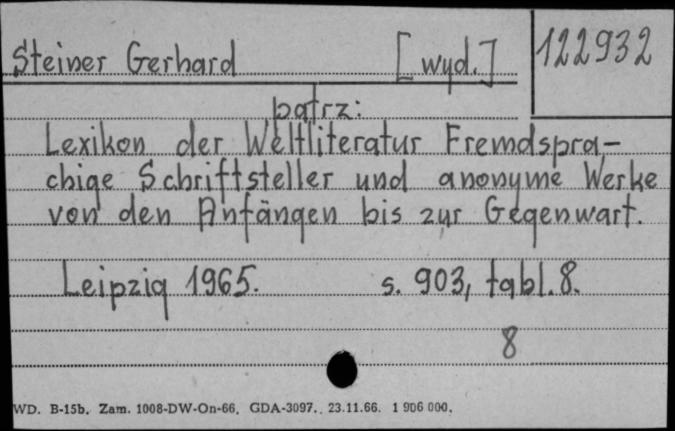 Steiner Gerhard [wyd.] 122932
patrz:
Lexikon der Weltliteratur Fremdspra-
chige Schriftsteller und anonyme Werke
von den Anfängen bis zur Gegenwart.
Leipzig 1965. s. 903, tabl. 8.
8
WD. B-15b. Zam. 1008-DW-On-66. GDA-3097. 23.11.66. 1 906 000.